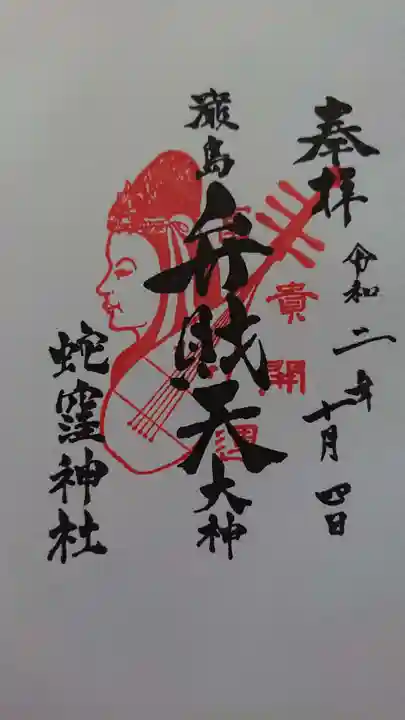 奉拝
令和二年十月四日
厳島
弁財天
大神
貴
開
運
蛇窪神社